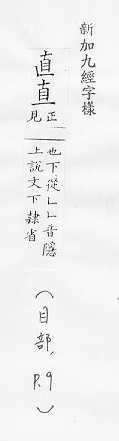 新加九經字樣
直直
正
見
也下從乚乚音隱
上說文下隸省
(目部, P.9)